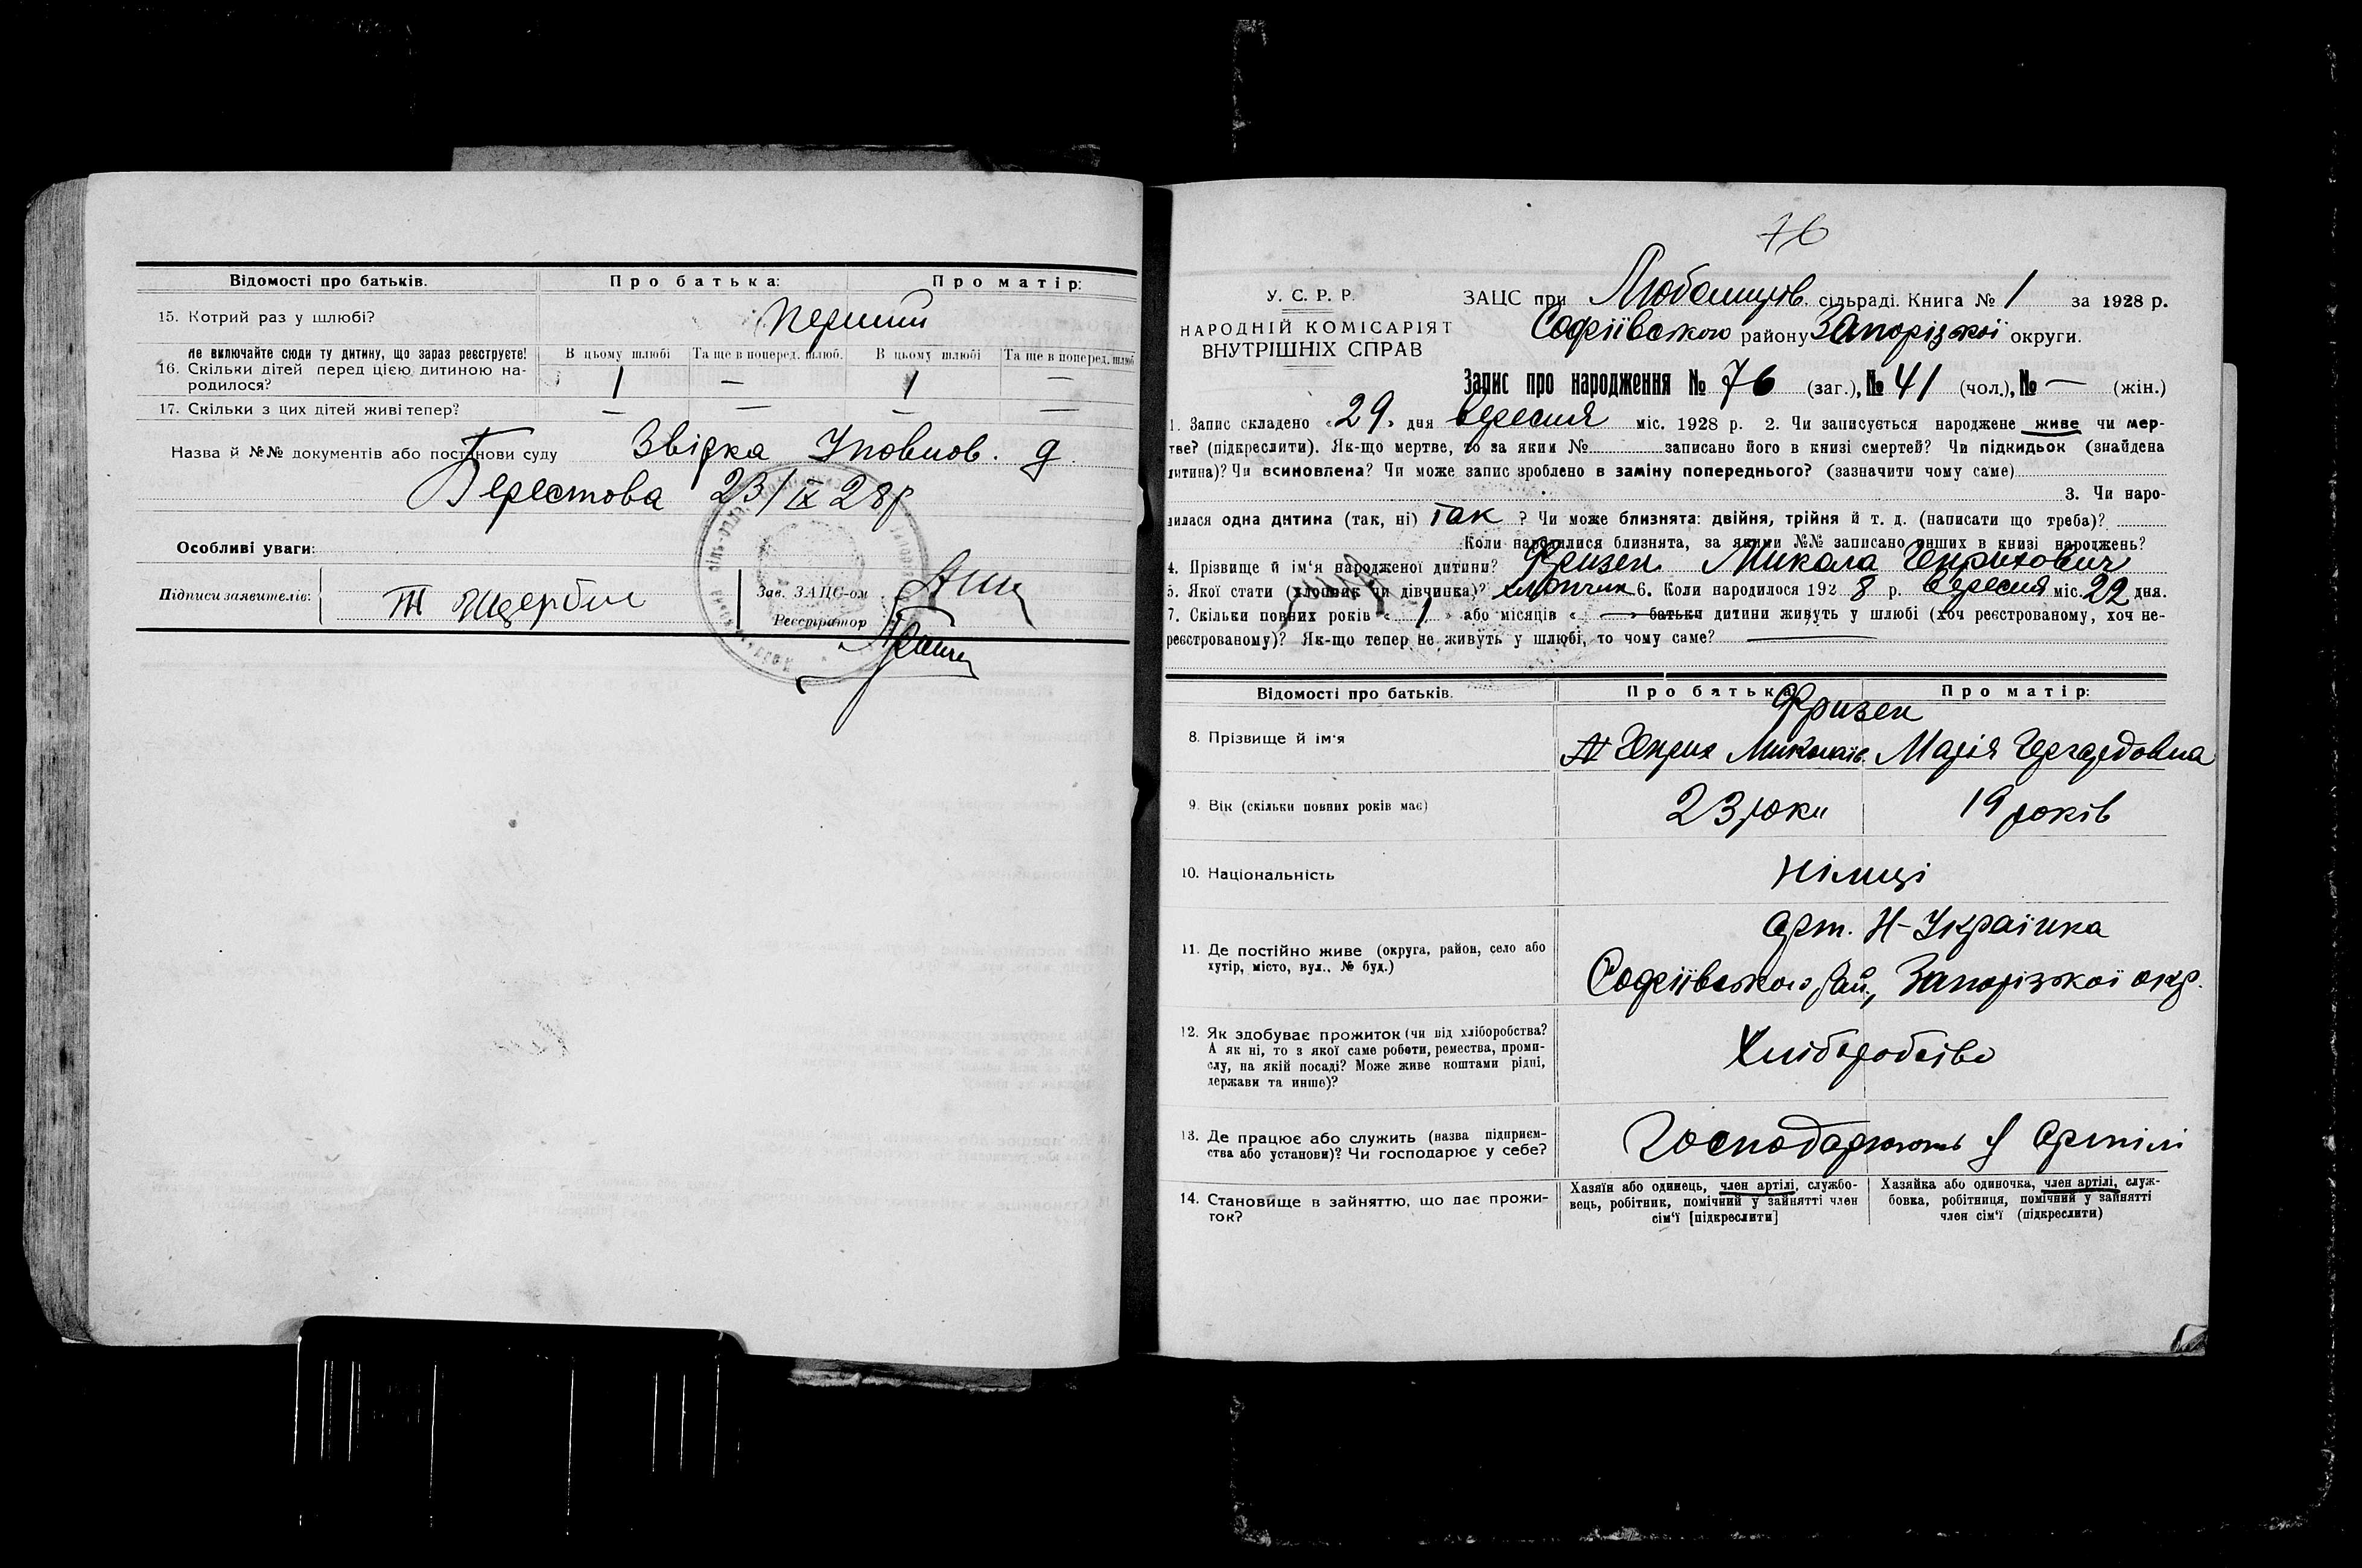 Відомості про батьків. Про батька: Про матір:
15. Котрий раз у шлюбі? перший
Не включайте сюди ту дитину, що зараз реєструєте! В цьому шлюбі Та ще в поперед. шлюб. В цьому шлюбі Та ще в поперед. шлюб
16. Скільки дітей перед цією дитиною на-
родилося? 1 — 1 —
17. Скільки з цих дітей живі тепер? — — — —
Назва й №№ документів або постанови суду Звідка Уповнов. д.
Берестова 23/IX 28р
Особливі уваги:
Підписи заявителів: Зав. ЗАЦС-ом
Реєстратор
76
У. С. Р. Р.
НАРОДНІЙ КОМІСАРІЯТ
ВНУТРІШНІХ СПРАВ
ЗАЦС при сільраді. Книга № 1 за 1928 р.
Софіївського району Запорізької округи.
Запис про народження № 76 (заг.), № 41 (чол.), № — (жін.)
1. Запис складено «29» дня вересня міс. 1928 р. 2. Чи записується народжене живе чи мер-
тве? (підкреслити). Як-що мертве, то за яким № записано його в книзі смертей? Чи підкидьок (знайдена
дитина)? Чи всиновлена? Чи може запис зроблено в заміну попереднього? (зазначити чому саме)
3. Чи наро-
дилася одна дитина (так, ні) так ? Чи може близнята: двійня, трійня й т. д. (написати що треба)?
Коли народилися близнята, за якими №№ записано инших в книзі народжень?
4. Прізвище й ім'я народженої дитини? Фризен Микола Генрихович
5. Якої стати (хлопчик чи дівчинка)? хлопчик 6. Коли народилося 1928 р. вересня міс. 22 дня.
7. Скільки повних років «1» або місяців « — » батьки дитини живуть у шлюбі (хоч реєстрованому, хоч не-
реєстрованому)? Як-що тепер не живуть у шлюбі, то чому саме? —
Відомості про батьків. Про батька: Про матір:
Фризен
8. Прізвище й ім'я Генрих Миколаїв. Марія Гергардовна
9. Вік (скільки повних років має) 23 роки 19 років
10. Національність Німці
11. Де постійно живе (округа, район, село або
хутір, місто, вул., № буд.)
Арт. Н-Українка
Софіївського рай., Запорізької окр.
12. Як здобуває прожиток (чи від хліборобства?
А як ні, то з якої саме роботи, ремества, проми-
слу, на якій посаді? Може живе коштами рідні,
держави та инше)?
Хліборобство
13. Де працює або служить (назва підприєм-
ства або установи)? Чи господарює у себе?
Господарюють у Артілі
14. Становище в зайняттю, що дає прожи-
ток?
Хазяїн або одинець, член артілі, службо-
вець, робітник, помічний у зайнятті член
сім'ї [підкреслити]
Хазяйка або одиночка, член артілі, служ-
бовка, робітниця, помічний у зайнятті
член сім'ї (підкреслити)